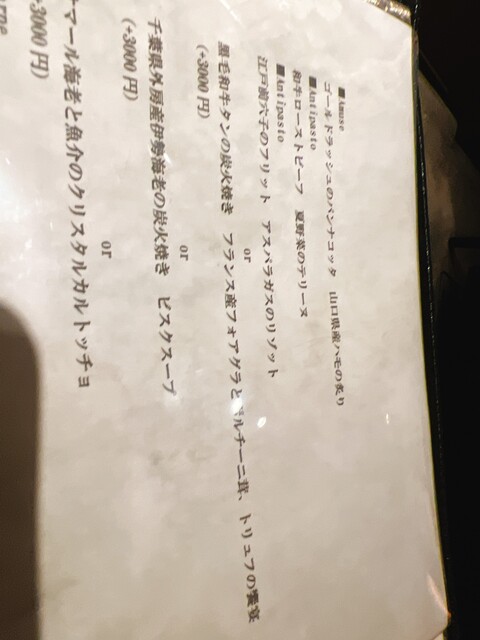 ■Amuse
ゴールドラッシュのパンナコッタ　山口県産ハモの炙り
■Antipasto
和牛ローストビーフ　夏野菜のテリーヌ
■Antipasto
江戸前穴子のフリット　アスパラガスのリゾット
or
黒毛和牛タンの炭火焼き　フランス産フォアグラとポルチーニ茸、トリュフの饗宴
(+3000円)
or
千葉県外房産伊勢海老の炭火焼き　ビスクスープ
(+3000円)
or
マール海老と魚介のクリスタルカルトッチョ
+3000円)